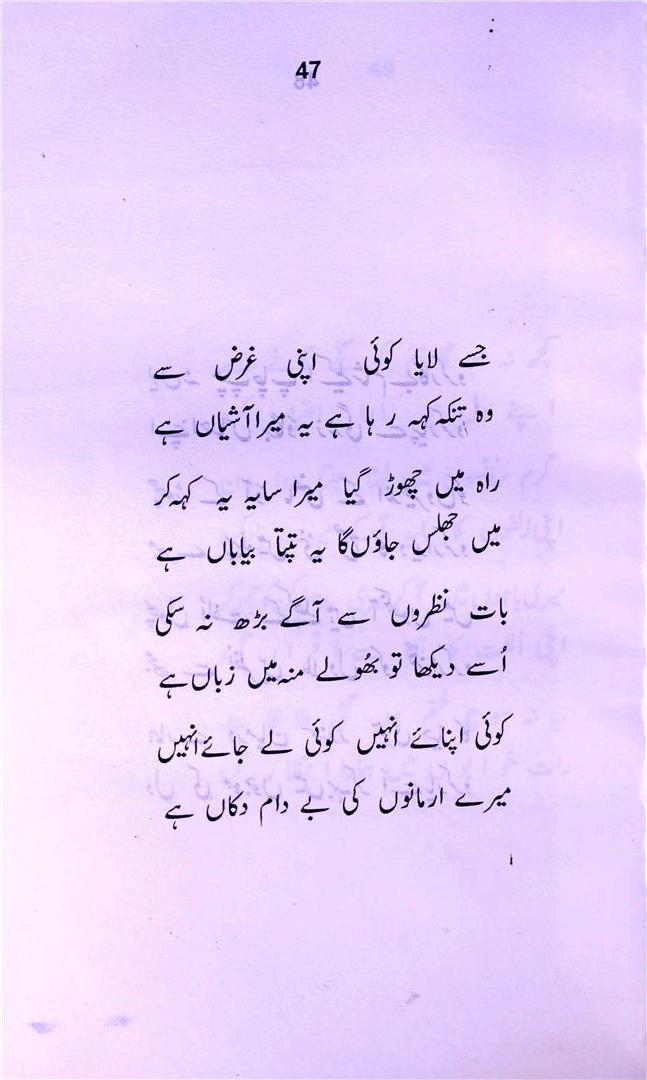 47
جسے لایا کوئی اپنی غرض سے
وہ تنکہ کہہ رہا ہے یہ میرا آشیاں ہے
راہ میں چھوڑ گیا میرا سایہ یہ کہہ کر
میں جھلس جاؤں گا یہ تپتا بیاباں ہے
بات نظروں سے آگے بڑھ نہ سکی
اُسے دیکھا تو بھُولے منہ میں زباں ہے
کوئی اپنائے انہیں کوئی لے جائے انہیں
میرے ارمانوں کی بے دام دکاں ہے